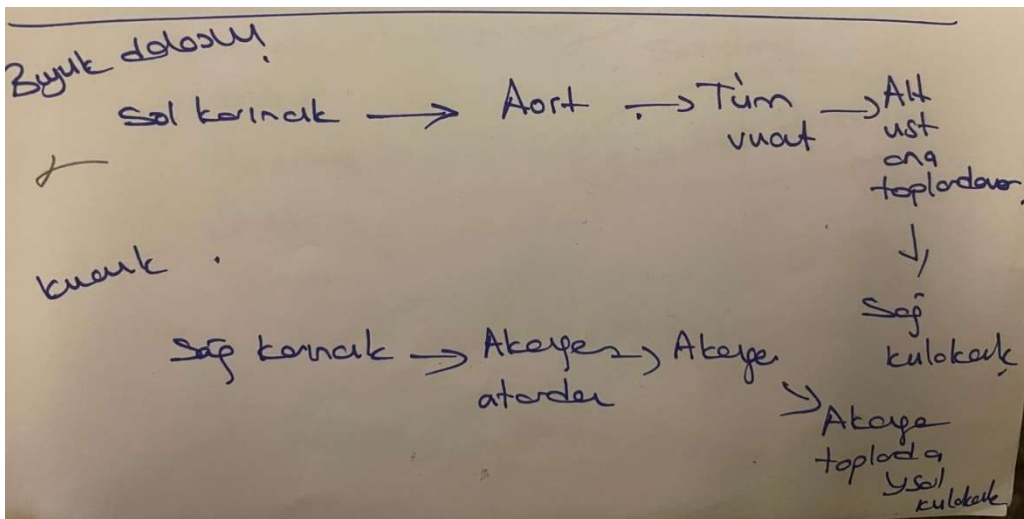 Büyük dolaşım
Sol karıncık → Aort → Tüm vucut → Alt üst ana toplardamar
↓
Sağ kulakcık
Küçük
Sağ karıncık → Akciğer atardar → Akciğer
↘ Akciğer toplarda
sol kulakcık